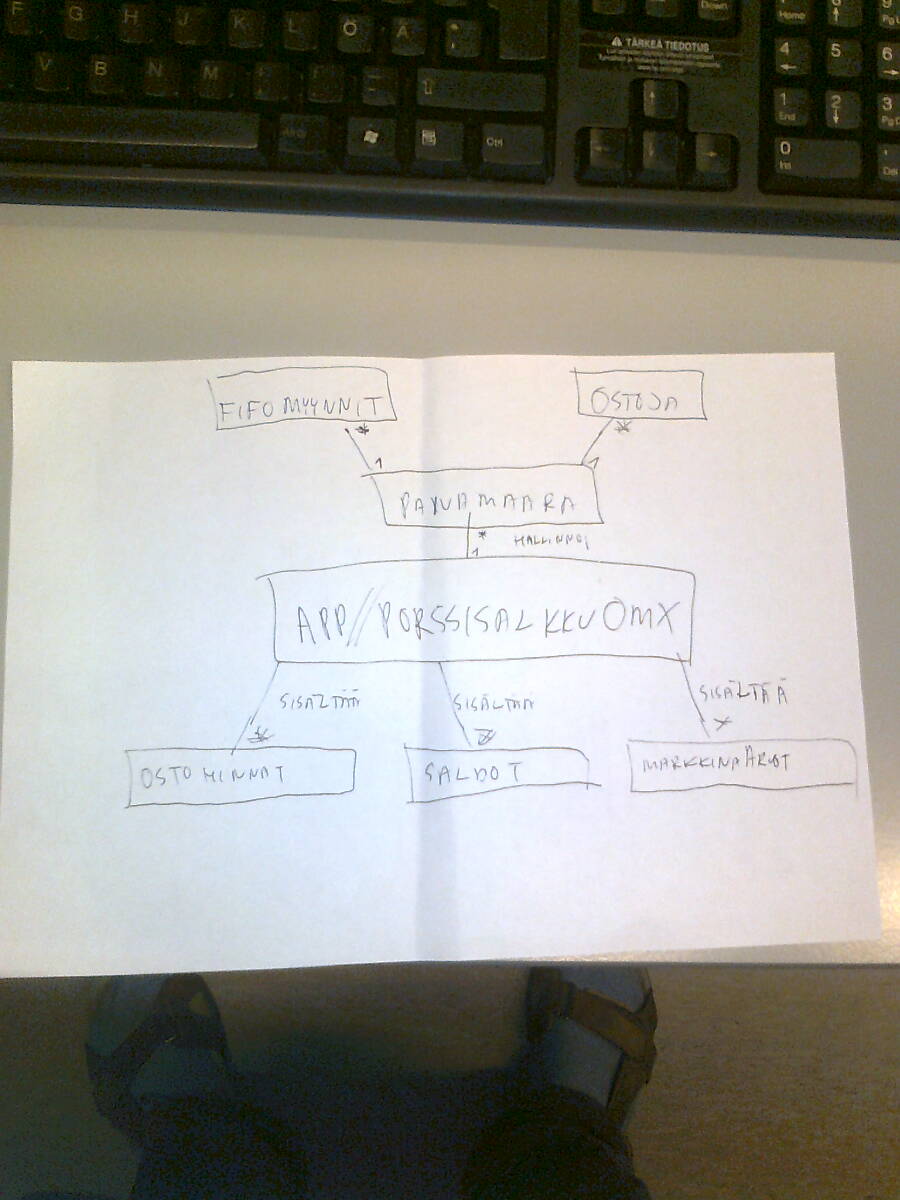 F G H J K L Ö Ä
V B N M
Ctrl
Down
Home
Pg U
⚠ TÄRKEÄ TIEDOTUS
4 5 6
1 2 3
End Pg D
0
Ins Del
FIFO MYYNNIT
OSTOJA
* *
1 1
PAIVAMAARA
* HALLINNOI
1
APP//PORSSISALKKUOMX
SISÄLTÄÄ SISÄLTÄÄ SISÄLTÄÄ
* * *
OSTOHINNAT SALDOT MARKKINAARVOT